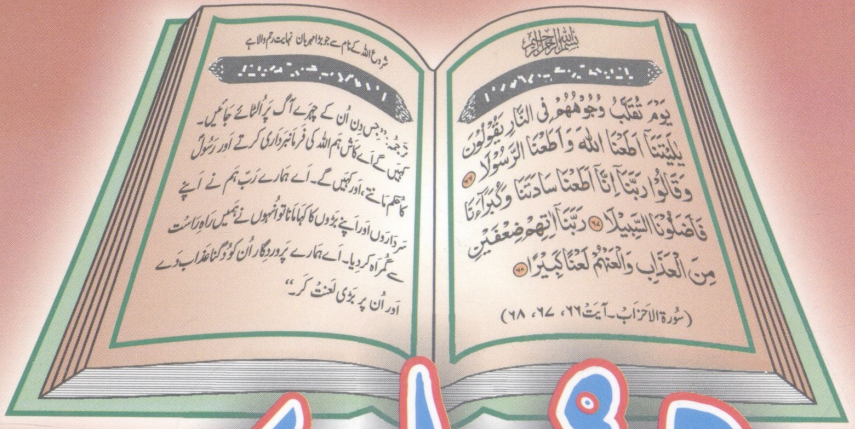 بسم الله الرحمن الرحيم
يَوْمَ تُقَلَّبُ وُجُوْهُهُمْ فِى النَّارِ يَقُوْلُوْنَ
يٰلَيْتَنَآ اَطَعْنَا اللّٰهَ وَ اَطَعْنَا الرَّسُوْلَا ﴿۶۶﴾
وَ قَالُوْا رَبَّنَآ اِنَّآ اَطَعْنَا سَادَتَنَا وَ كُبَرَآءَنَا
فَاَضَلُّوْنَا السَّبِيْلَا ﴿۶۷﴾ رَبَّنَآ اٰتِهِمْ ضِعْفَيْنِ
مِنَ الْعَذَابِ وَ الْعَنْهُمْ لَعْنًا كَبِيْرًا ﴿۶۸﴾
(سُورۃ الاحزاب۔ آیت ۶۶، ۶۷، ۶۸)
شروع اللہ کے نام سے جو بڑا مہربان نہایت رحم والا ہے
ترجمہ: ”جس دن اُن کے چہرے آگ پر اُلٹائے جائیں۔
کہیں گے اے کاش ہم اللہ کی فرمانبرداری کرتے اور رسُولؐ
کا حکم مانتے، اور کہیں گے۔ اے ہمارے رَبّ ہم نے اپنے
سرداروں اور اپنے بڑوں کا کہا مانا تو اُنہوں نے ہمیں راہِ راست
سے گمراہ کر دیا۔ اے ہمارے پروردگار اُن کو دُگنا عذاب دے
اور اُن پر بڑی لعنت کر۔“